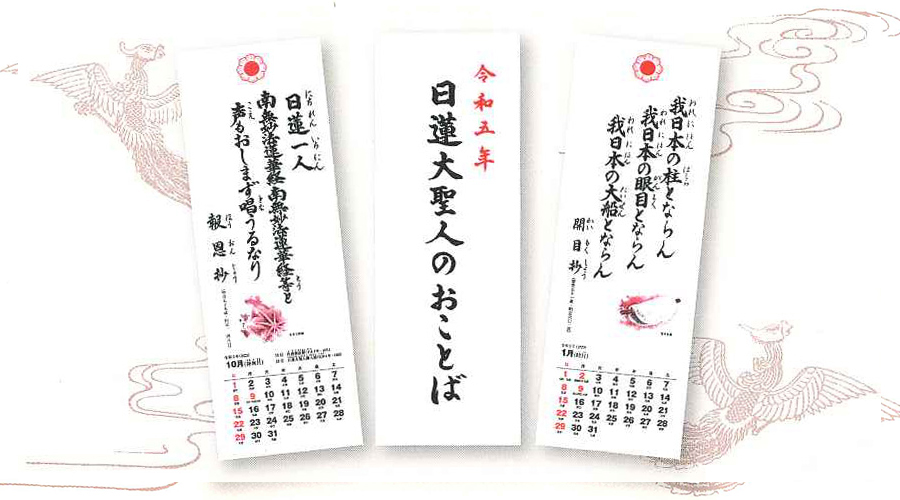 我日本の柱とならん
われ にほん はしら
我日本の眼目とならん
われ にほん がんもく
我日本の大船とならん
われ にほん たいせん
開目抄
かい もく しょう
1月(睦月)
日 月 火 水 木 金 土
1 2 3 4 5 6 7
8 9 10 11 12 13 14
15 16 17 18 19 20 21
22 23 24 25 26 27 28
29 30 31
令和五年
日蓮大聖人のおことば
日蓮一人
にち れん いち にん
南無妙法蓮華経南無妙法蓮華経等と
とう
声もおしまず唱うるなり
こえ とな
報恩抄
ほう おん しょう
10月(神無月)
日 月 火 水 木 金 土
1 2 3 4 5 6 7
8 9 10 11 12 13 14
15 16 17 18 19 20 21
22 23 24 25 26 27 28
29 30 31